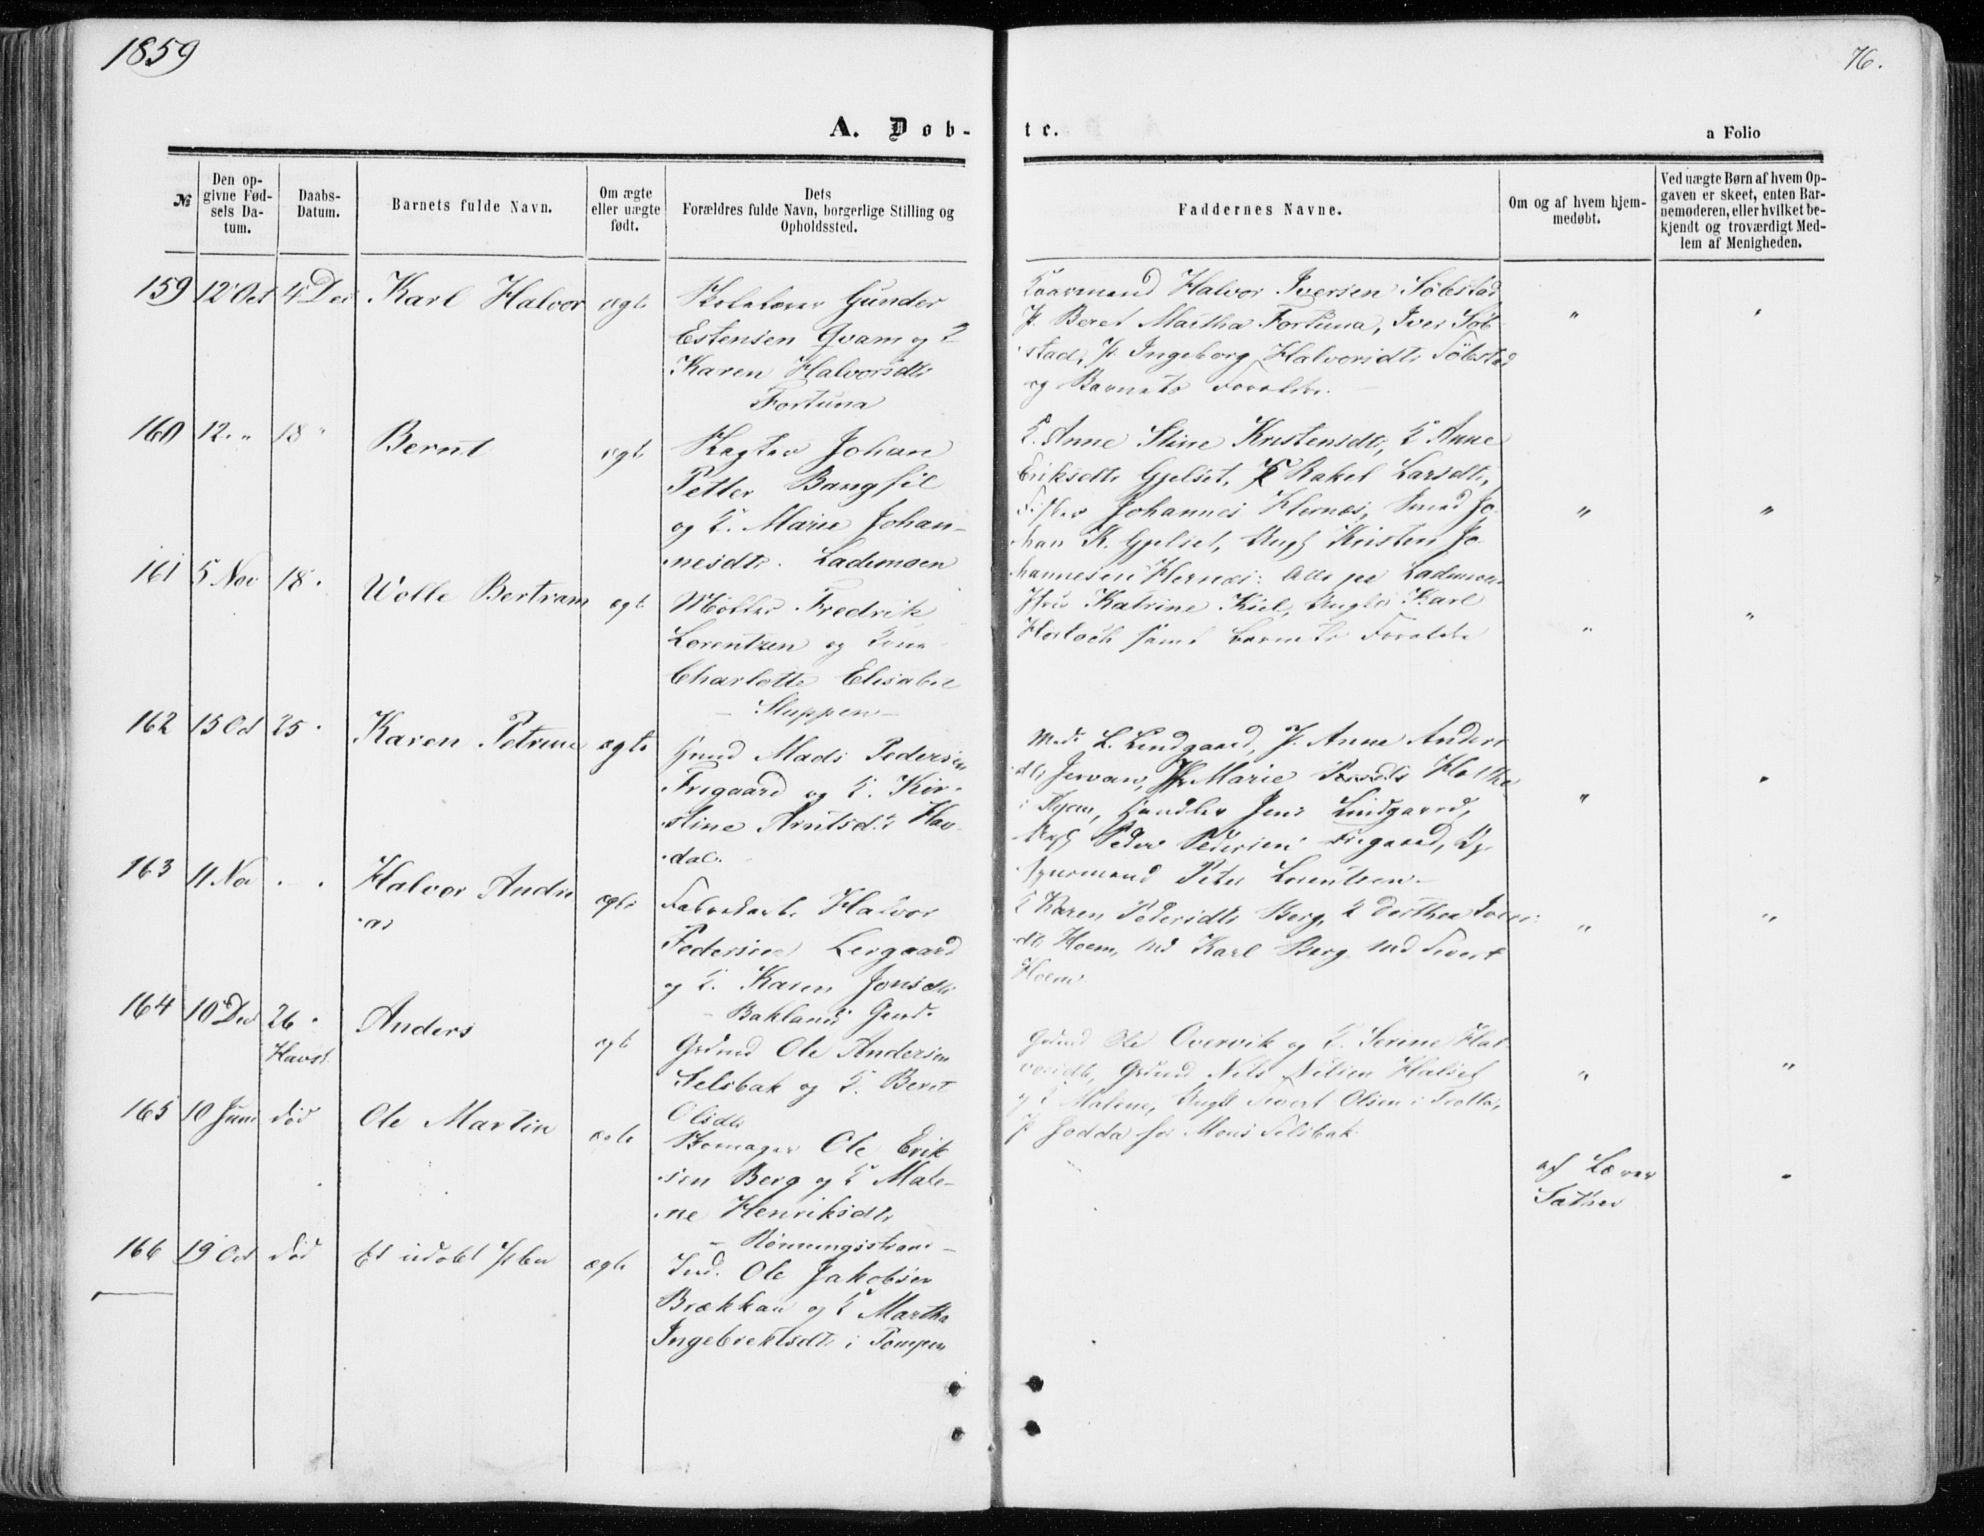 1859
76.
A. Døb-
te.
a Folio
№
Den op-
givne Fød-
sels Da-
tum.
Daabs-
Datum.
Barnets fulde Navn.
Om ægte
eller uægte
født.
Dets
Forældres fulde Navn, borgerlige Stilling og
Opholdssted.
Faddernes Navne.
Om og af hvem hjem-
medøbt.
Ved uægte Børn af hvem Op-
gaven er skeet, enten Bar-
nemoderen, eller hvilket be-
kjendt og troværdigt Med-
lem af Menigheden.
159 12 Oct 4 Dec Karl Halvor ægte
Skolelærer Gunder
Estensen Qvam og
Karen Halvorsdtr
Fortuna
Halvor Iversen Söbstad,
P. Beret Martha Fortuna, Iver Söb-
stad, P. Ingeborg Halvorsdtr Söbstad
og Barnets Forældre.
160 12 " 18 " Bernt ægte
Johan
Petter Bangfil
og K. Marie Johan-
nesdtr. Lademoen
K. Anne Stine Kristensdtr, K Anne
Eriksdtr Gjelset, Rakel Larsdtr,
Fisker Johannes Hernæs, Smed Jo-
han K. Gjelset, Ungk Kristen Jo-
hannesen Hernæs: Alle paa Lademoen
161 5 Nov 18 " Wolle Bertram ægte
Møller Fredrik
Lorentzen og Kone
Charlotte Elisabet
- Sluppen -
Jfru Katrine Kiel, Ungk Karl
samt barnets Forældre
162 15 Oct 25 " Karen Petrine ægte
Grmd Mads Pedersen
Frigaard og K. Kir-
stine Arntsdtr Hav-
dal.
L. Lindgaard, P. Anne Anders-
dtr Jervan, Marie Holthe
Handler Jens Lindgaard,
Ungk Peder Pedersen Frigaard, By-
Peter Lorentzen
163 11 Nov " " Halvor Andre-
as ægte
Fabrikarb. Halvor
Pedersen Leegaard
og K. Karen Jonsdtr
- Baklands Grd.
K Karen Pedersdtr Berg, K Dorthea Iver-
dtr Hoem, Md Karl Berg, Md Sivert
Hoem
164 10 Dec 26 " Anders ægte
Havst.
Grdmd Ole Andersen
Selsbak og K. Beret
Olsdtr
Grdmd Ole Overvik og K. Serine Hal-
vorsdtr, Grdmd Nels Nilsen Halset
og K Malene, Ungk Sivert Olsen i Trolla,
P Gjodda for Mons Selsbak
165 10 Juni død Ole Martin ægte
Skomager Ole Erik-
sen Berg og K Male-
ne Henriksdtr
- Rönningstrøen -
af Lærer
Sæther
166 19 Oct død Et udøbt ægte
Ind. Ole Jakobsen
Brækkan og K Martha
Ingebrektsdtr i Pompen